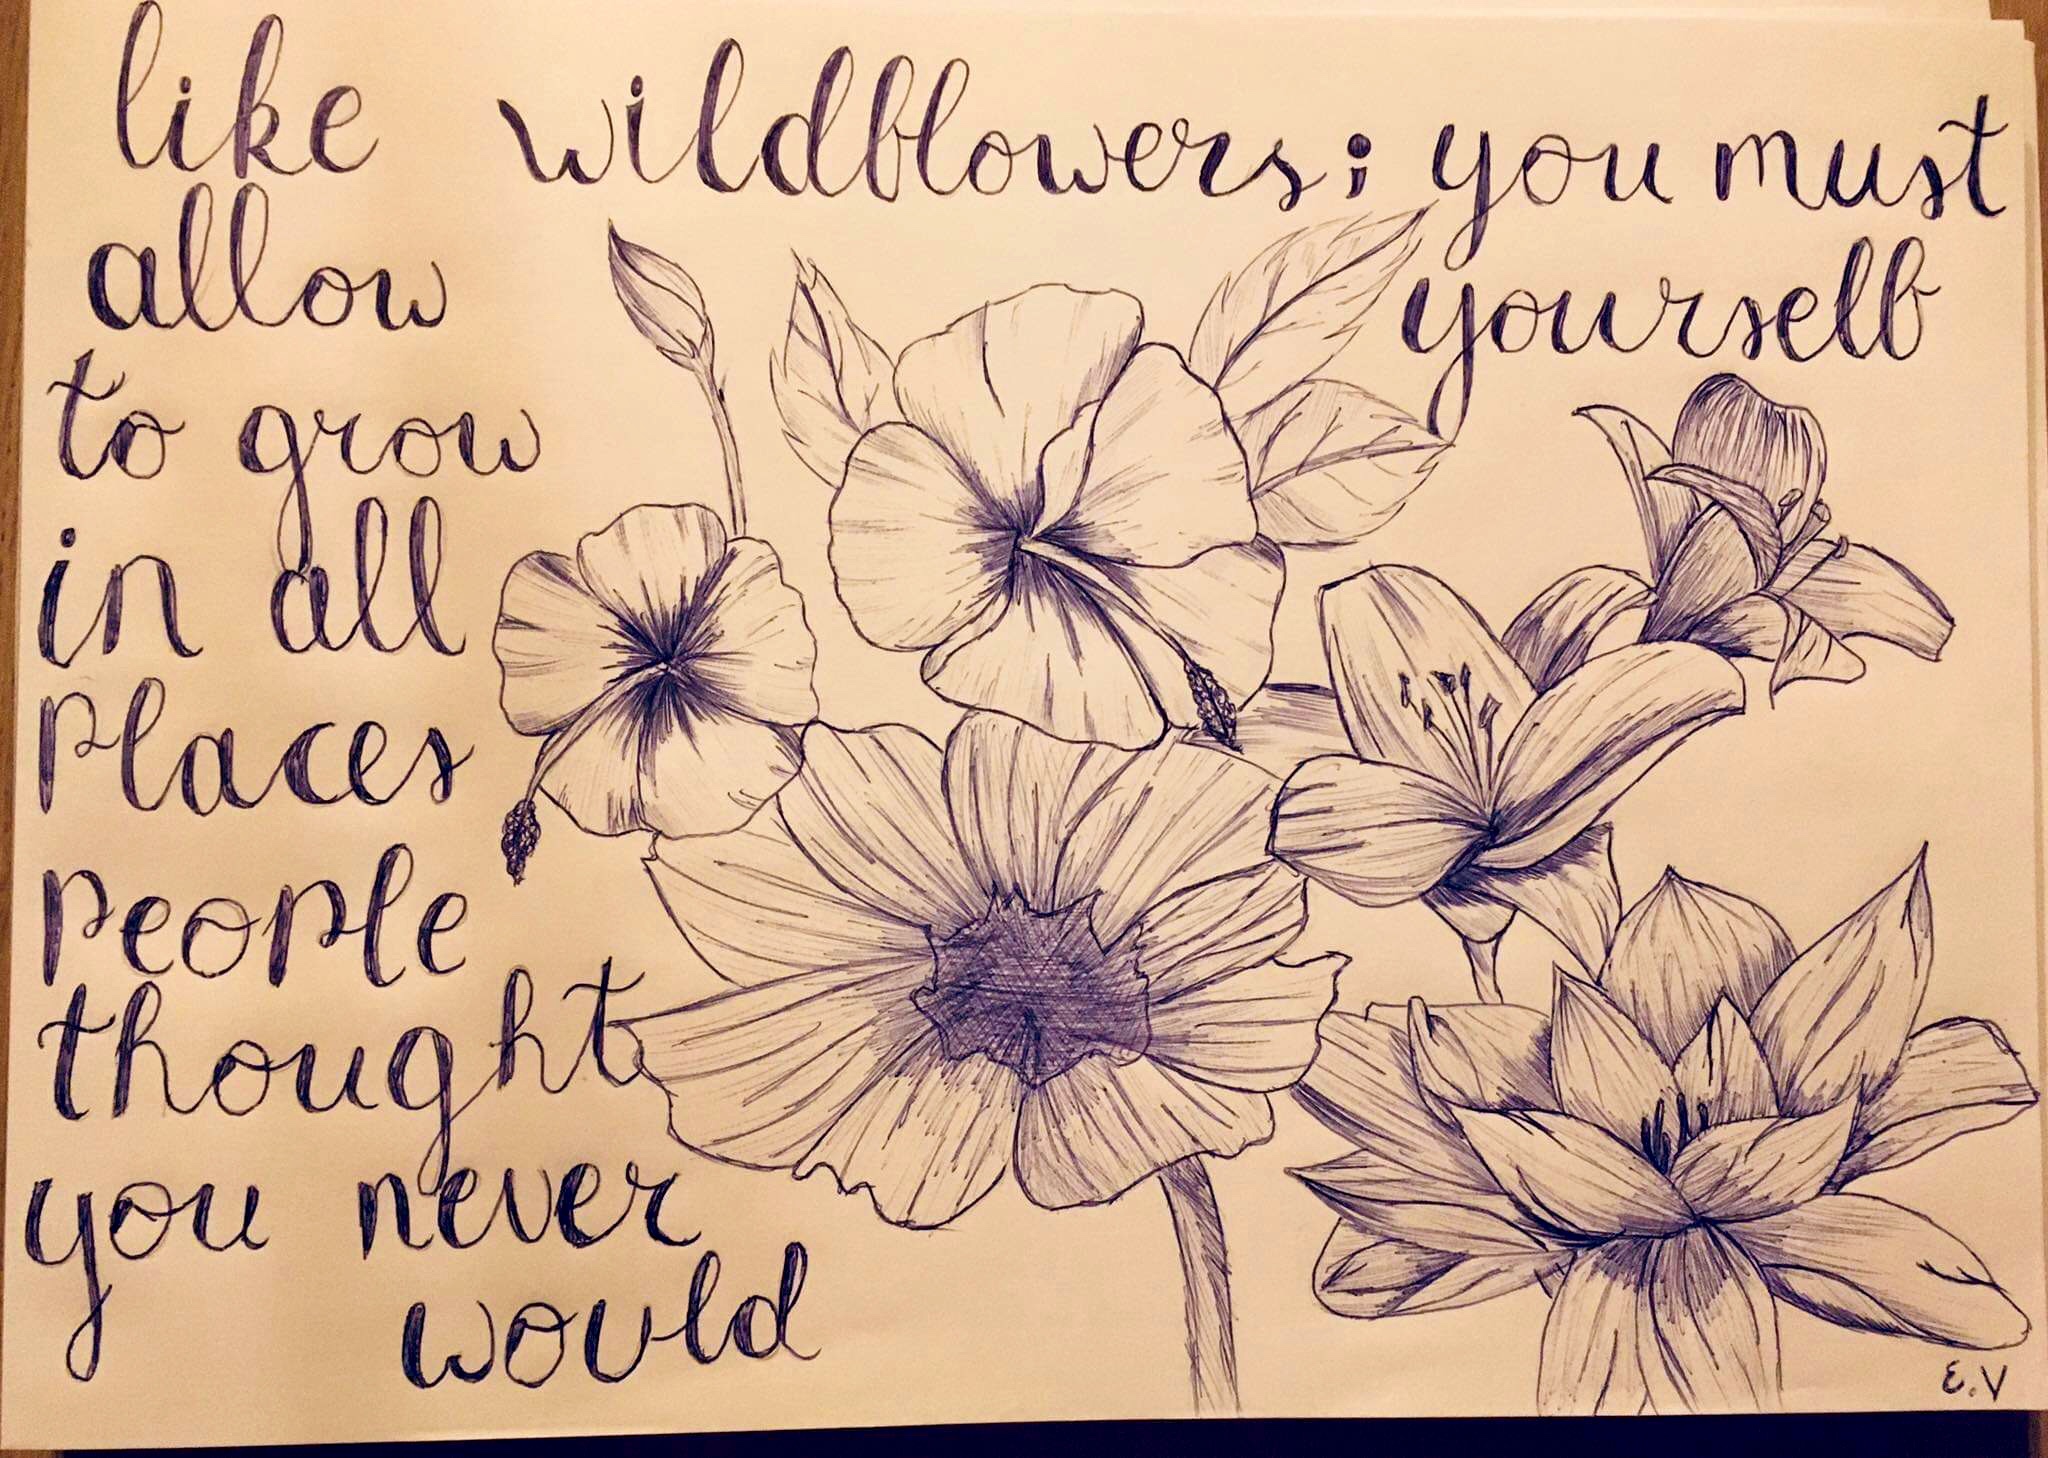 like wildflowers; you must
allow yourself
to grow
in all
Places
People
thought
you never
would
E.V